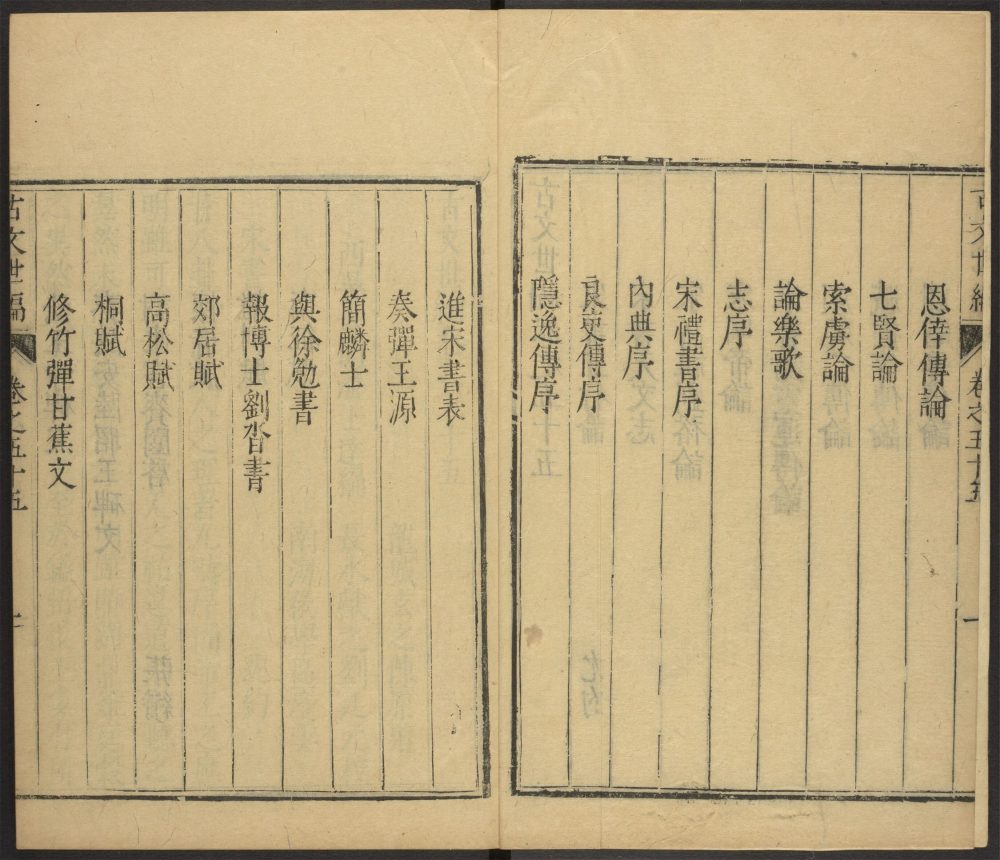 古文世編 卷之五十五 一
恩倖傳論
七賢論
索虜論
論樂歌
志序
宋禮書序
內典序
良吏傳序
隱逸傳序
進宋書表
奏彈王源
簡麟士
與徐勉書
報博士劉杳書
郊居賦
高松賦
桐賦
修竹彈甘蕉文
古文世編 卷之五十五